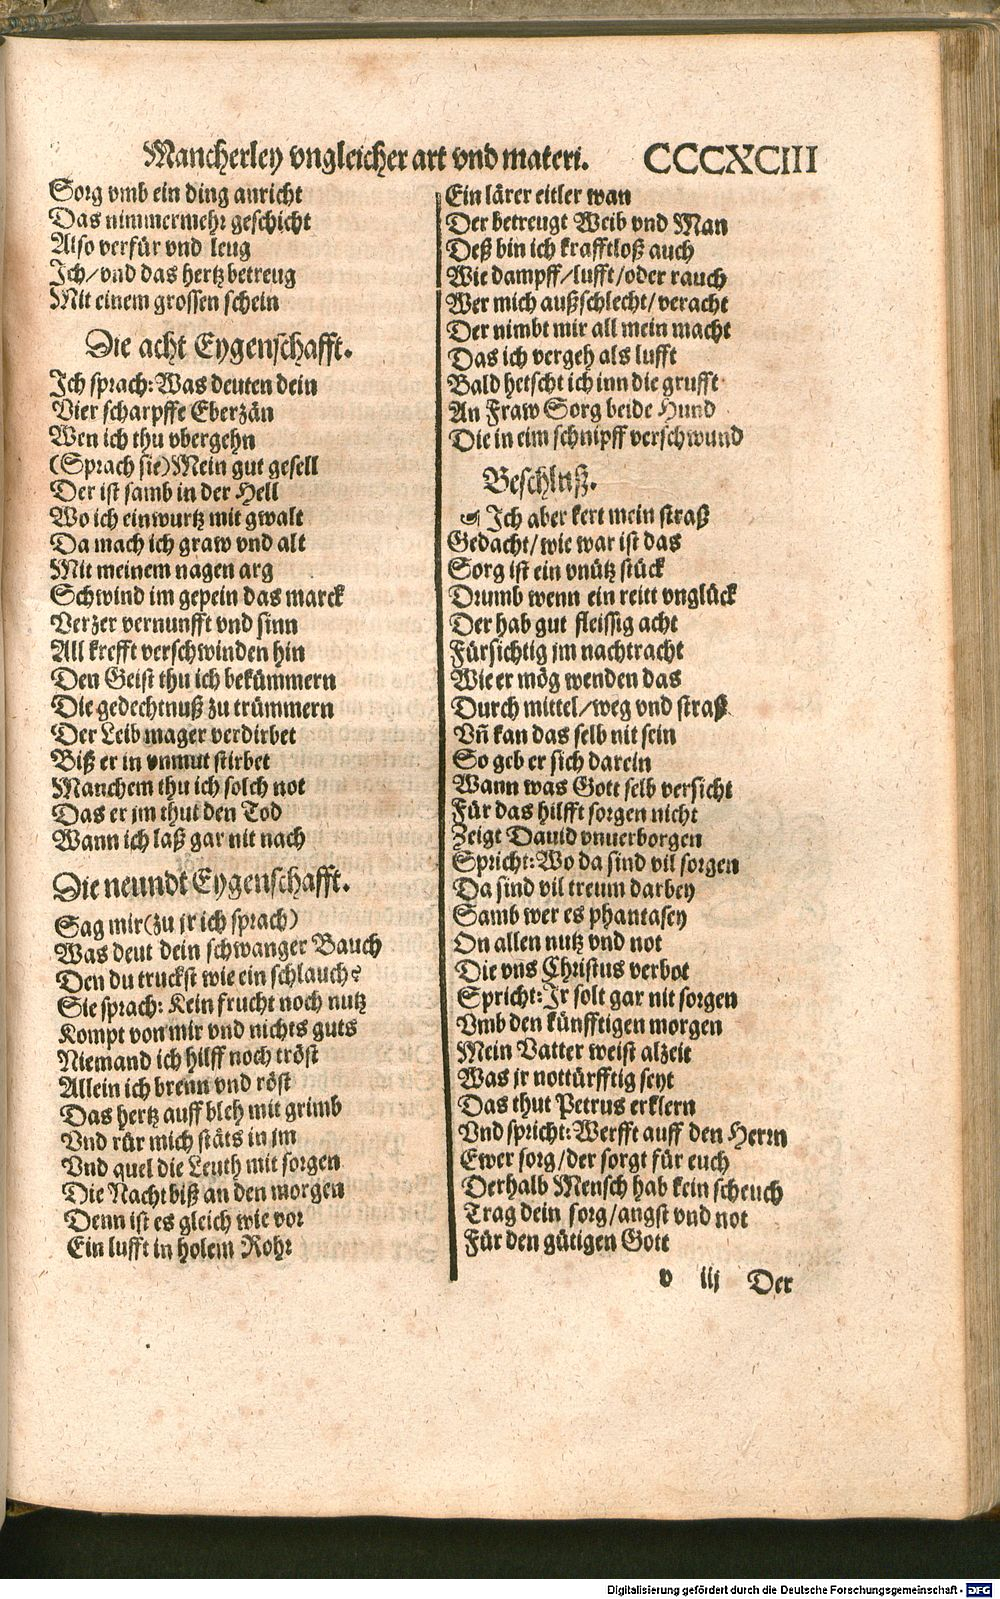 Mancherley vngleicher art vnd materi. CCCXCIII
Sorg vmb ein ding anricht
Das nimmermehr geschicht
Also verfür vnd leug
Ich/vnd das hertz betreug
Mit einem grossen schein
Die acht Eygenschafft.
Ich sprach: Was deuten dein
Vier scharpffe Eberzän
Wen ich thu vbergehn
(Sprach sie) Mein gut gesell
Der ist samb in der Hell
Wo ich einwurtz mit gwalt
Da mach ich graw vnd alt
Mit meinem nagen arg
Schwind im gepein das marck
Verzer vernunfft vnd sinn
All krefft verschwinden hin
Den Geist thu ich bekümmern
Die gedechtnuß zu trümmern
Der Leib mager verdirbet
Biß er in vnmut stirbet
Manchem thu ich solch not
Das er jm thut den Tod
Wann ich laß gar nit nach
Die neundt Eygenschafft.
Sag mir (zu jr ich sprach)
Was deut dein schwanger Bauch
Den du truckst wie ein schlauch?
Sie sprach: Kein frucht noch nutz
Kompt von mir vnd nichts guts
Niemand ich hilff noch tröst
Allein ich brenn vnd röst
Das hertz auff bleh mit grimb
Vnd rür mich stäts in jm
Vnd quel die Leuth mit sorgen
Die Nacht biß an den morgen
Denn ist es gleich wie vor
Ein lufft in holem Rohr
Ein lärer eitler wan
Der betreugt Weib vnd Man
Deß bin ich krafftloß auch
Wie dampff/lufft/oder rauch
Wer mich außschlecht/veracht
Der nimbt mir all mein macht
Das ich vergeh als lufft
Bald hetscht ich inn die grufft
An Fraw Sorg beide Hund
Die in eim schnipff verschwund
Beschluß.
☙ Ich aber kert mein straß
Gedacht/wie war ist das
Sorg ist ein vnütz stück
Drumb wenn ein reitt vnglück
Der hab gut fleissig acht
Fürsichtig jm nachtracht
Wie er mög wenden das
Durch mittel/weg vnd straß
Vñ kan das selb nit sein
So geb er sich darein
Wann was Gott selb versicht
Für das hilfft sorgen nicht
Zeigt Dauid vnuerborgen
Spricht: Wo da sind vil sorgen
Da sind vil treum darbey
Samb wer es phantasey
On allen nutz vnd not
Die vns Christus verbot
Spricht: Jr solt gar nit sorgen
Vmb den künfftigen morgen
Mein Vatter weist alzeit
Was jr nottürfftig seyt
Das thut Petrus erklern
Vnd spricht: Werfft auff den Herrn
Ewer sorg/der sorgt für euch
Derhalb Mensch hab kein scheuch
Trag dein sorg/angst vnd not
Für den gütigen Gott
v iij Der
Digitalisierung gefördert durch die Deutsche Forschungsgemeinschaft - DFG